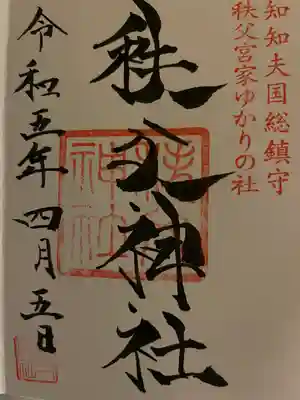 知知夫国総鎮守
秩父宮家ゆかりの社
秩父神社
令和五年四月五日